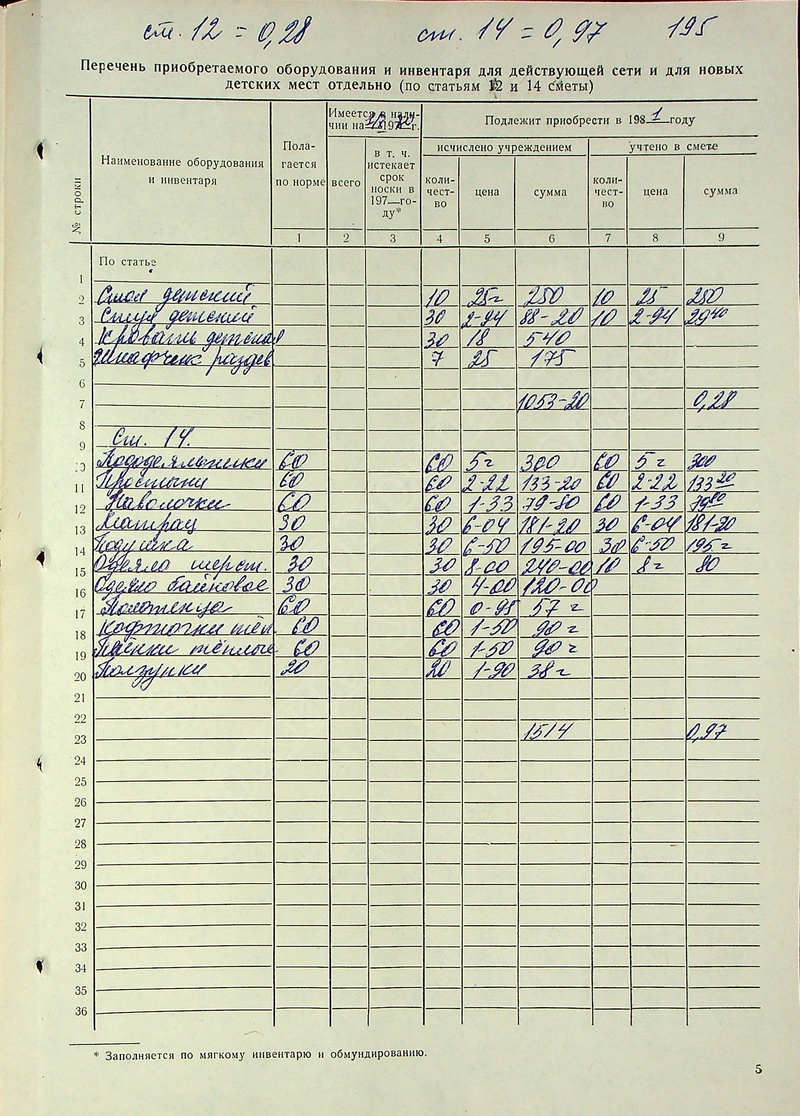 ст. 12 = 0,28 ст. 14 = 0,97 195
Перечень приобретаемого оборудования и инвентаря для действующей сети и для новых
детских мест отдельно (по статьям 12 и 14 сметы)
№ строки
Наименование оборудования и инвентаря
Полагается по норме
Имеется в наличии на 197 г.
всего
в т. ч. истекает срок носки в 197—году*
Подлежит приобрести в 1981 году
исчислено учреждением
учтено в смете
количество цена сумма количество цена сумма
1 2 3 4 5 6 7 8 9
1 По статье
2 Стол детский 10 25 250 10 25 250
3 Стул детский 30 2-94 88-20 10 2-94 29 40
4 Кровать детская 30 18 540
5 Шкафчик раздев 7 25 175
6
7 1053-20 0,28
8
9 Ст. 14.
10 Пододеяльники 60 60 5 г 300 60 5 г 300
11 Простыни 60 60 2-22 133-20 60 2-22 133 20
12 Наволочки 60 60 1-33 79-80 60 1-33 79 80
13 Матрац 30 30 6-04 181-20 30 6-04 181-20
14 Подушка 30 30 6-50 195-00 30 6-50 195 г
15 Одеяло шерст. 30 30 8-00 240-00 10 8 г 80
16 Одеяло байковое 30 30 4-00 120-00
17 Полотенца 60 60 0-95 57 г
18 Кофточки тёп. 60 60 1-50 90 г
19 Пелёнки тёплые 60 60 1-50 90 г
20 Ползунки 20 20 1-90 38 г
21
22
23 1514 0,97
24
25
26
27
28
29
30
31
32
33
34
35
36
* Заполняется по мягкому инвентарю и обмундированию.
5